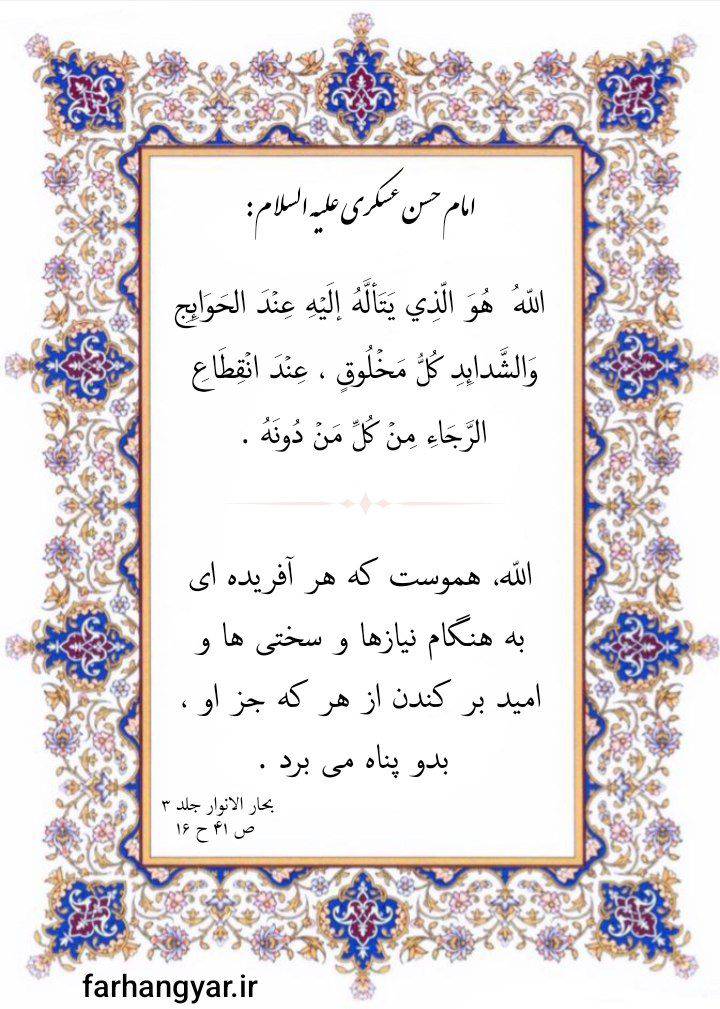 امام حسن عسکری علیه السلام :
اللّهُ هُوَ الّذِي يَتَألَّهُ إلَيْهِ عِنْدَ الحَوَايِجِ
وَالشَّدايِدِ كُلُّ مَخْلُوقٍ ، عِنْدَ انْقِطَاعِ
الرَّجَاءِ مِنْ كُلِّ مَنْ دُونَهُ .
اللّه، هموست که هر آفریده ای
به هنگام نیازها و سختی ها و
امید بر کندن از هر که جز او ،
بدو پناه می برد .
بحار الانوار جلد ۳
ص ۴۱ ح ۱۶
farhangyar.ir